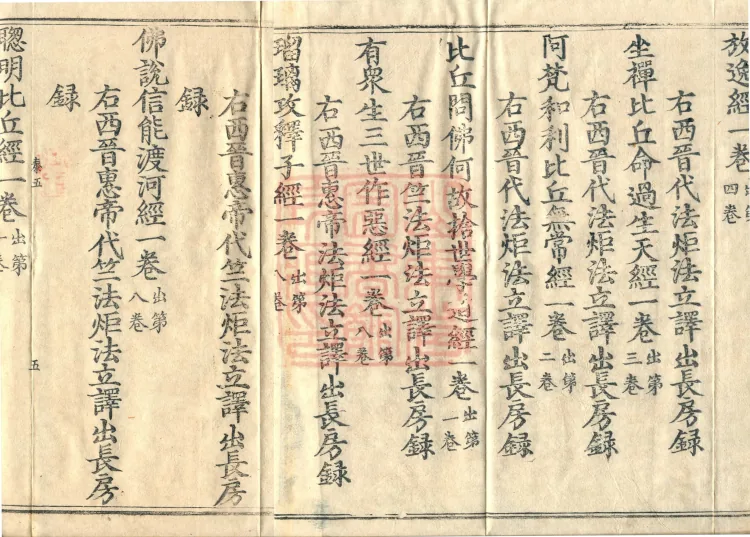 放逸經一卷出第四卷
右西晉代法炬法立譯出長房録
坐禪比丘命過生天經一卷出第三卷
右西晉代法炬法立譯出長房録
阿梵和利比丘無常經一卷出第二卷
右西晉代法炬法立譯出長房録
比丘問佛何故捨世學道經一卷出第一卷
右西晉竺法炬法立譯出長房録
有衆生三世作惡經一卷出第八卷
右西晉惠帝法炬法立譯出長房録
瑠璃攻釋子經一卷出第八卷
右西晉惠帝代竺法炬法立譯出長房
録
佛說信能渡河經一卷出第八卷
右西晉惠帝代竺法炬法立譯出長房
録
五
聰明比丘經一卷出第一卷